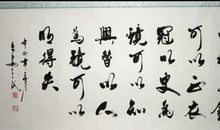 可以正衣
冠以史為
鏡可以知
興替以人
為鏡可以
明得失